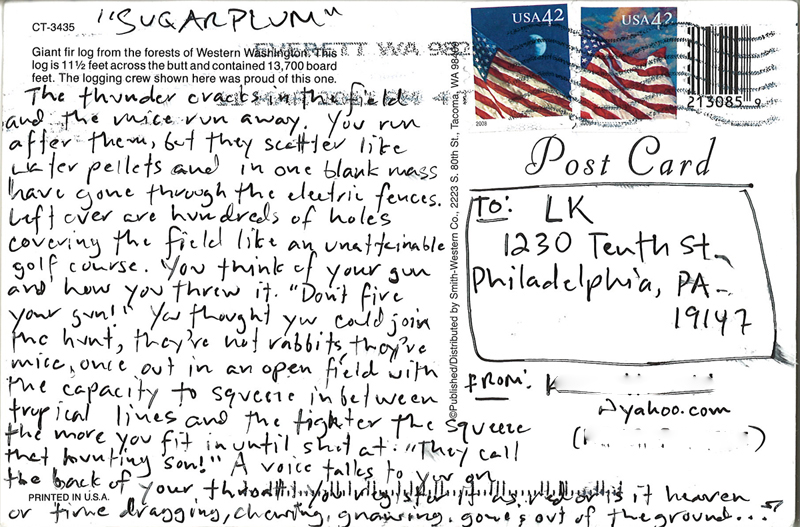 "SUGARPLUM"
CT-3435
Giant fir log from the forests of Western Washington. This
log is 11½ feet across the butt and contained 13,700 board
feet. The logging crew shown here was proud of this one.
EVERETT WA 982
The thunder cracks in the field
and the mice run away. You run
after them, but they scatter like
water pellets and in one blank mass
have gone through the electric fences.
Left over are hundreds of holes
covering the field like an unattainable
golf course. You think of your gun
and how you threw it. "Don't fire
your gun!" You thought you could join
the hunt, they're not rabbits they're
mice, once out in an open field with
the capacity to squeeze in between
tropical lines and the tighter the squeeze
the more you fit in until shot at. "They call
that hunting son!" A voice talks to your gun
the back of your throat. You register it as or is it heaven
or time dragging, chewing, gnawing, gone out of the ground...
PRINTED IN U.S.A.
©Published/Distributed by Smith-Western Co., 2223 S. 80th St., Tacoma, WA 98409
USA 42
2008
USA 42
213085 9
Post Card
TO: LK
1230 Tenth St.
Philadelphia, PA
19147
FROM: K
@yahoo.com
( )